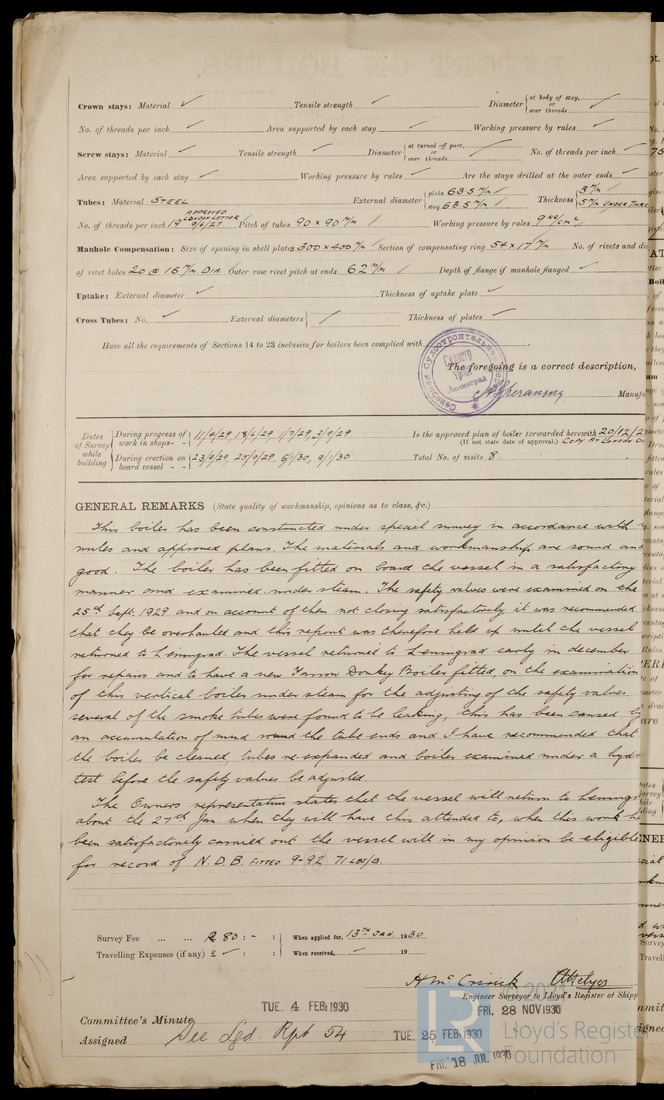 Crown stays: Material ✓ Tensile strength ✓ Diameter { at body of stay, or over threads ✓
No. of threads per inch ✓ Area supported by each stay ✓ Working pressure by rules ✓
Screw stays: Material ✓ Tensile strength ✓ Diameter { at turned off part, or over threads ✓ No. of threads per inch ✓
Area supported by each stay ✓ Working pressure by rules ✓ Are the stays drilled at the outer ends ✓
Tubes: Material STEEL External diameter { plain 63.5 m/m stay 63.5 m/m Thickness { 3 m/m 5 m/m UNDER THRE
No. of threads per inch 19 APPROVED LONDON LETTER 9/6/27 Pitch of tubes 90 x 90 m/m Working pressure by rules 9 KG/cm²
Manhole Compensation: Size of opening in shell plates 300 x 400 m/m Section of compensating ring 54 x 17 m/m No. of rivets and di
of rivet holes 20 @ 16 m/m DIA. Outer row rivet pitch at ends 62 m/m Depth of flange if manhole flanged ✓
Uptake: External diameter ✓ Thickness of uptake plate ✓
Cross Tubes: No. ✓ External diameters { Thickness of plates ✓
Have all the requirements of Sections 14 to 23 inclusive for boilers been complied with
The foregoing is a correct description,
Manufa
Ленинград
Dates of Survey while building { During progress of work in shops - - { 11/4/29, 18/6/29, 1/7/29, 3/9/29
Is the approved plan of boiler forwarded herewith 20/12/2
(If not state date of approval.) COPY AT LONDON O
During erection on board vessel - - { 23/9/29, 25/9/29, 6/1/30, 9/1/30
Total No. of visits 8
GENERAL REMARKS (State quality of workmanship, opinions as to class, &c.)
This boiler has been constructed under special survey in accordance with
rules and approved plans. The materials and workmanship are sound and
good. The boiler has been fitted on board the vessel in a satisfactory
manner and examined under steam. The safety valves were examined on the
25th Sept. 1929 and on account of them not closing satisfactorily it was recommended
that they be overhauled and this report was therefore held up until the vessel
returned to Leningrad. The vessel returned to Leningrad early in december
for repairs and to have a new Yarrow Donkey Boiler fitted, on the examination
of this vertical boiler under steam for the adjusting of the safety valves
several of the smoke tubes were found to be leaking, this has been caused by
an accumulation of mud round the tube ends and I have recommended that
the boiler be cleaned, tubes re-expanded and boiler examined under a hydr
test before the safety valves be adjusted.
The Owners representative states that the vessel will return to Leningr
about the 27th Jan. when they will have this attended to, when this work ha
been satisfactorily carried out the vessel will in my opinion be eligible
for record of N.D.B. FITTED 9-92 71 LBS/□.
Survey Fee ... ... R 80 : - : When applied for, 13TH JAN. 1930
Travelling Expenses (if any) £ - : : When received, - 19
Engineer Surveyor to Lloyd's Register of Shipp
TUE. 4 FEB 1930
FRI. 28 NOV 1930
Committee's Minute
Assigned See Lgd. Rpt 54
TUE. 25 FEB 1930
FRI. 18 JUL 1930
LR
© 2021
Lloyd's Register
Foundation